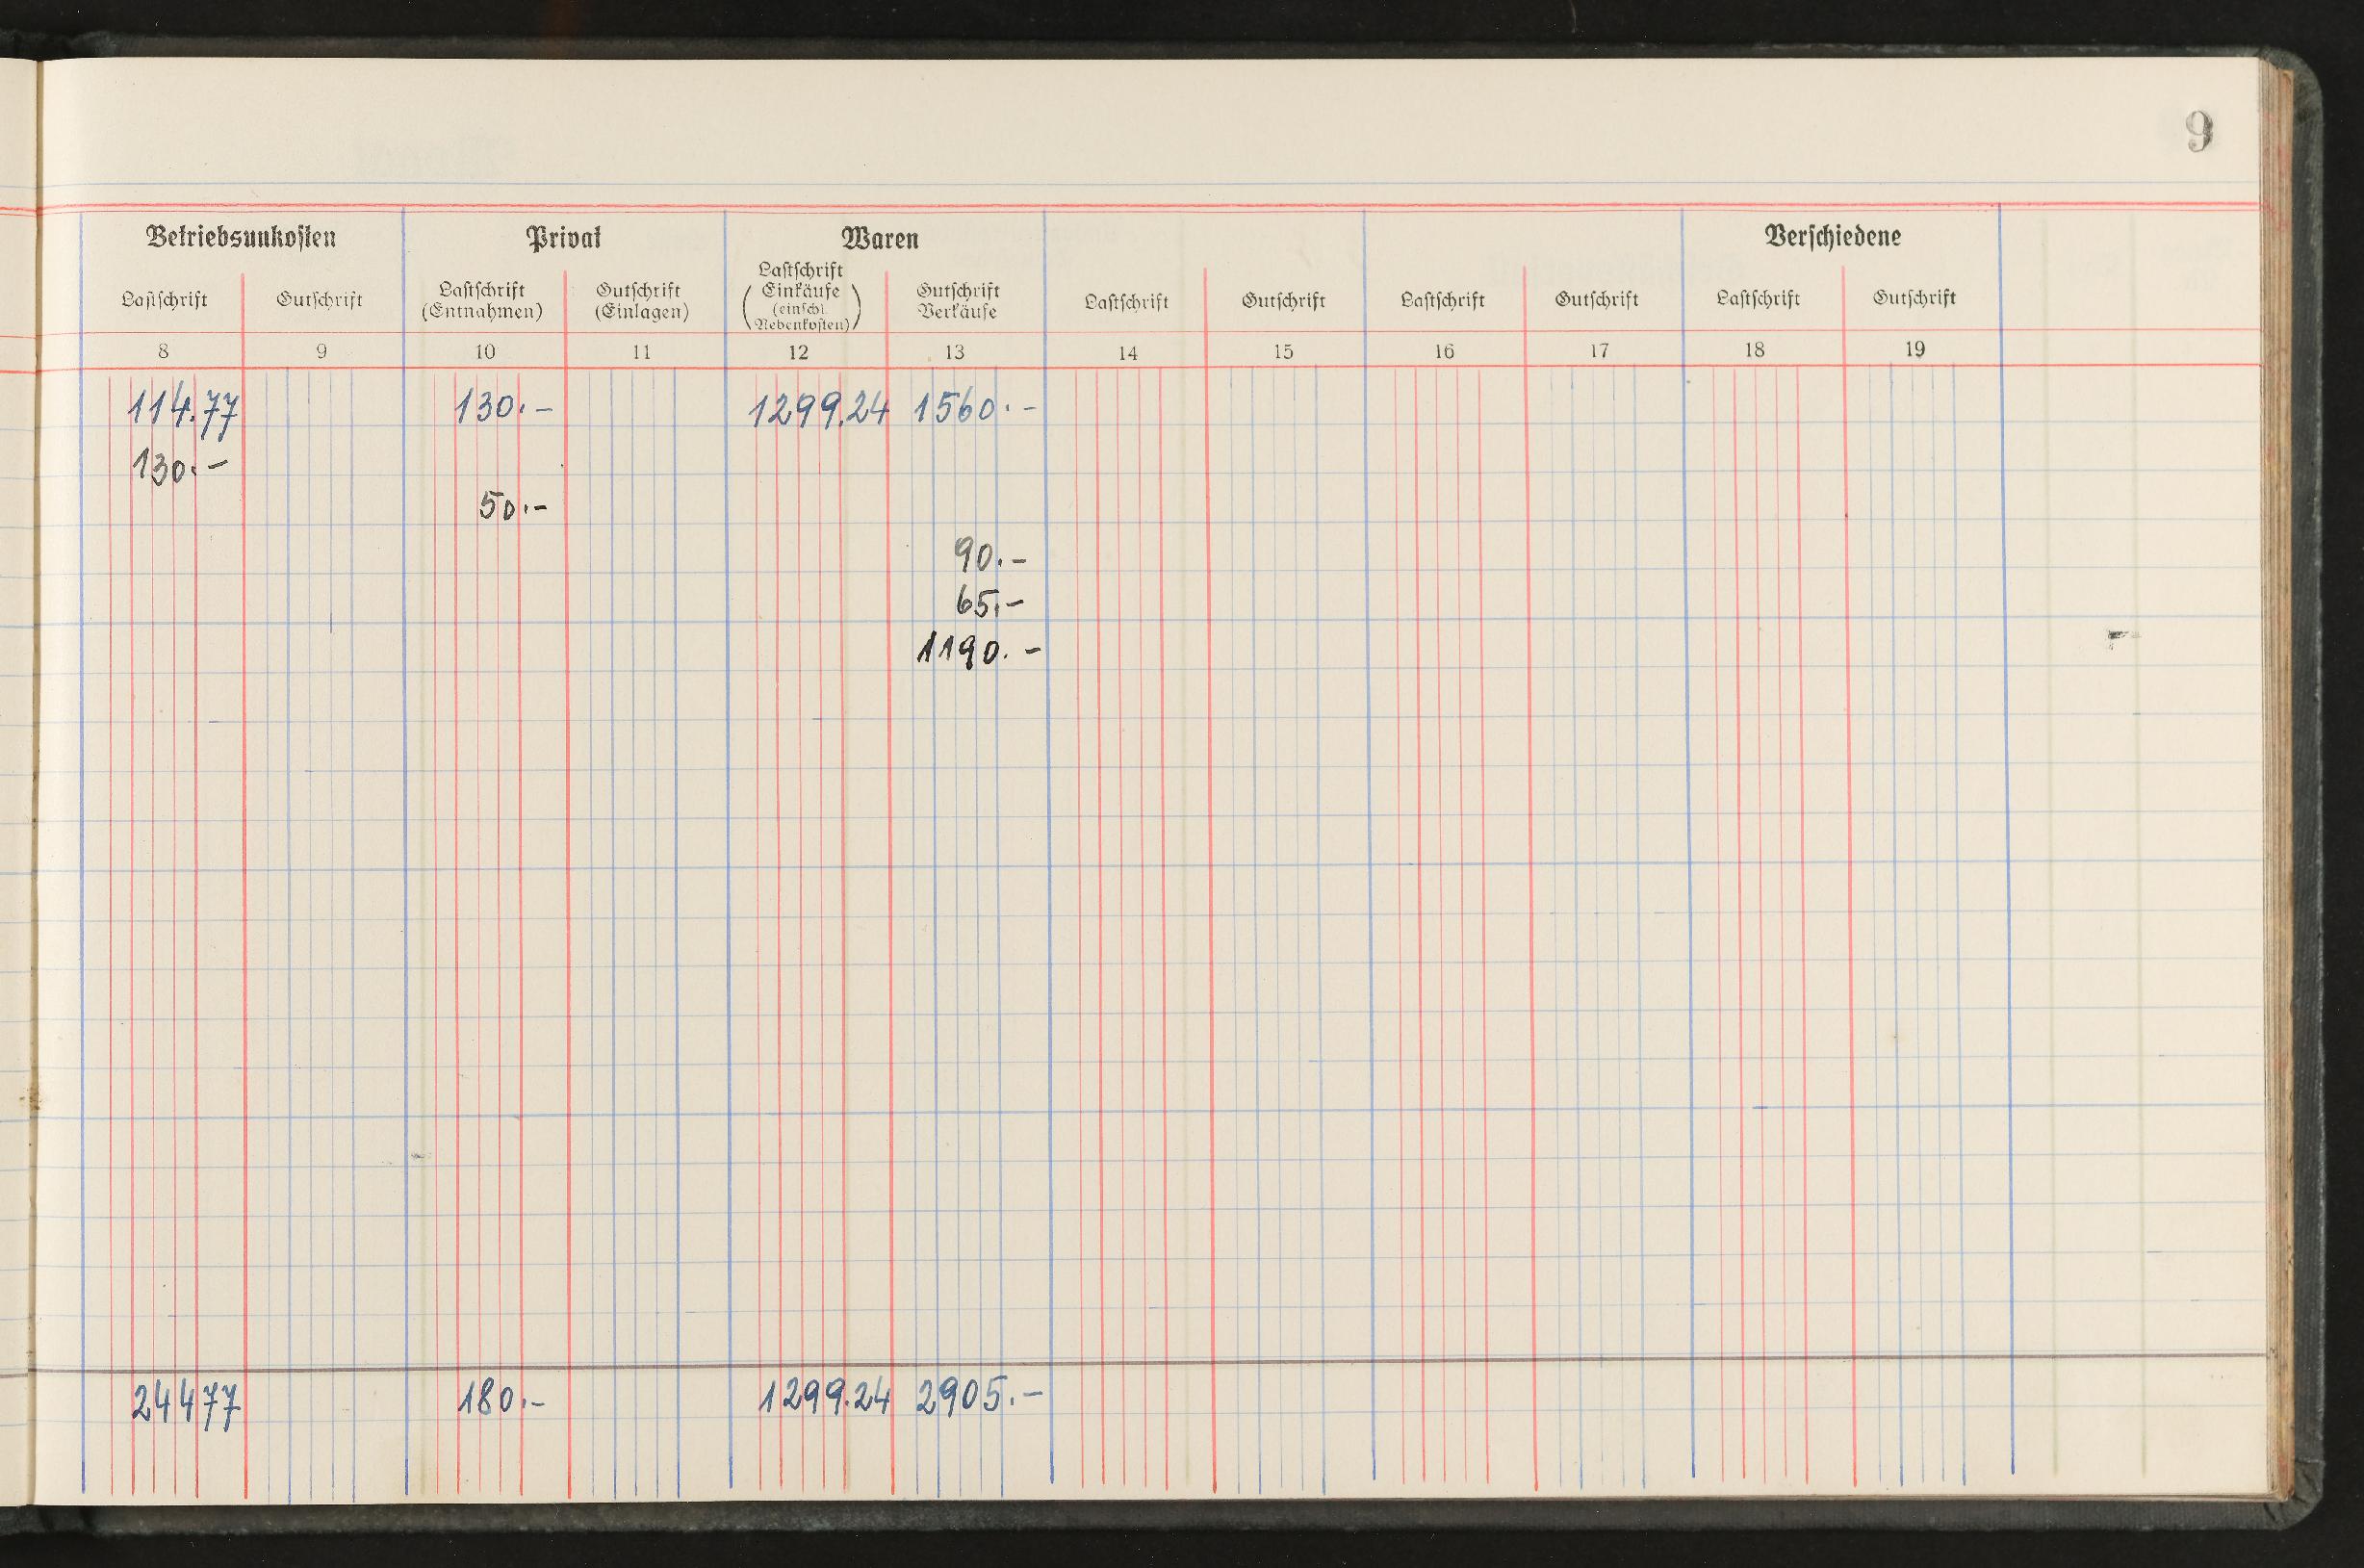 9
Betriebsunkosten Privat Waren Verschiedene
Lastschrift Gutschrift Lastschrift (Entnahmen) Gutschrift (Einlagen) Lastschrift Einkäufe (einschl. Nebenkosten) Gutschrift Verkäufe Lastschrift Gutschrift Lastschrift Gutschrift Lastschrift Gutschrift
8 9 10 11 12 13 14 15 16 17 18 19
114.77 130.- 1299.24 1560.-
130.-
50.-
90.-
65.-
1190.-
24477 180.- 1299.24 2905.-